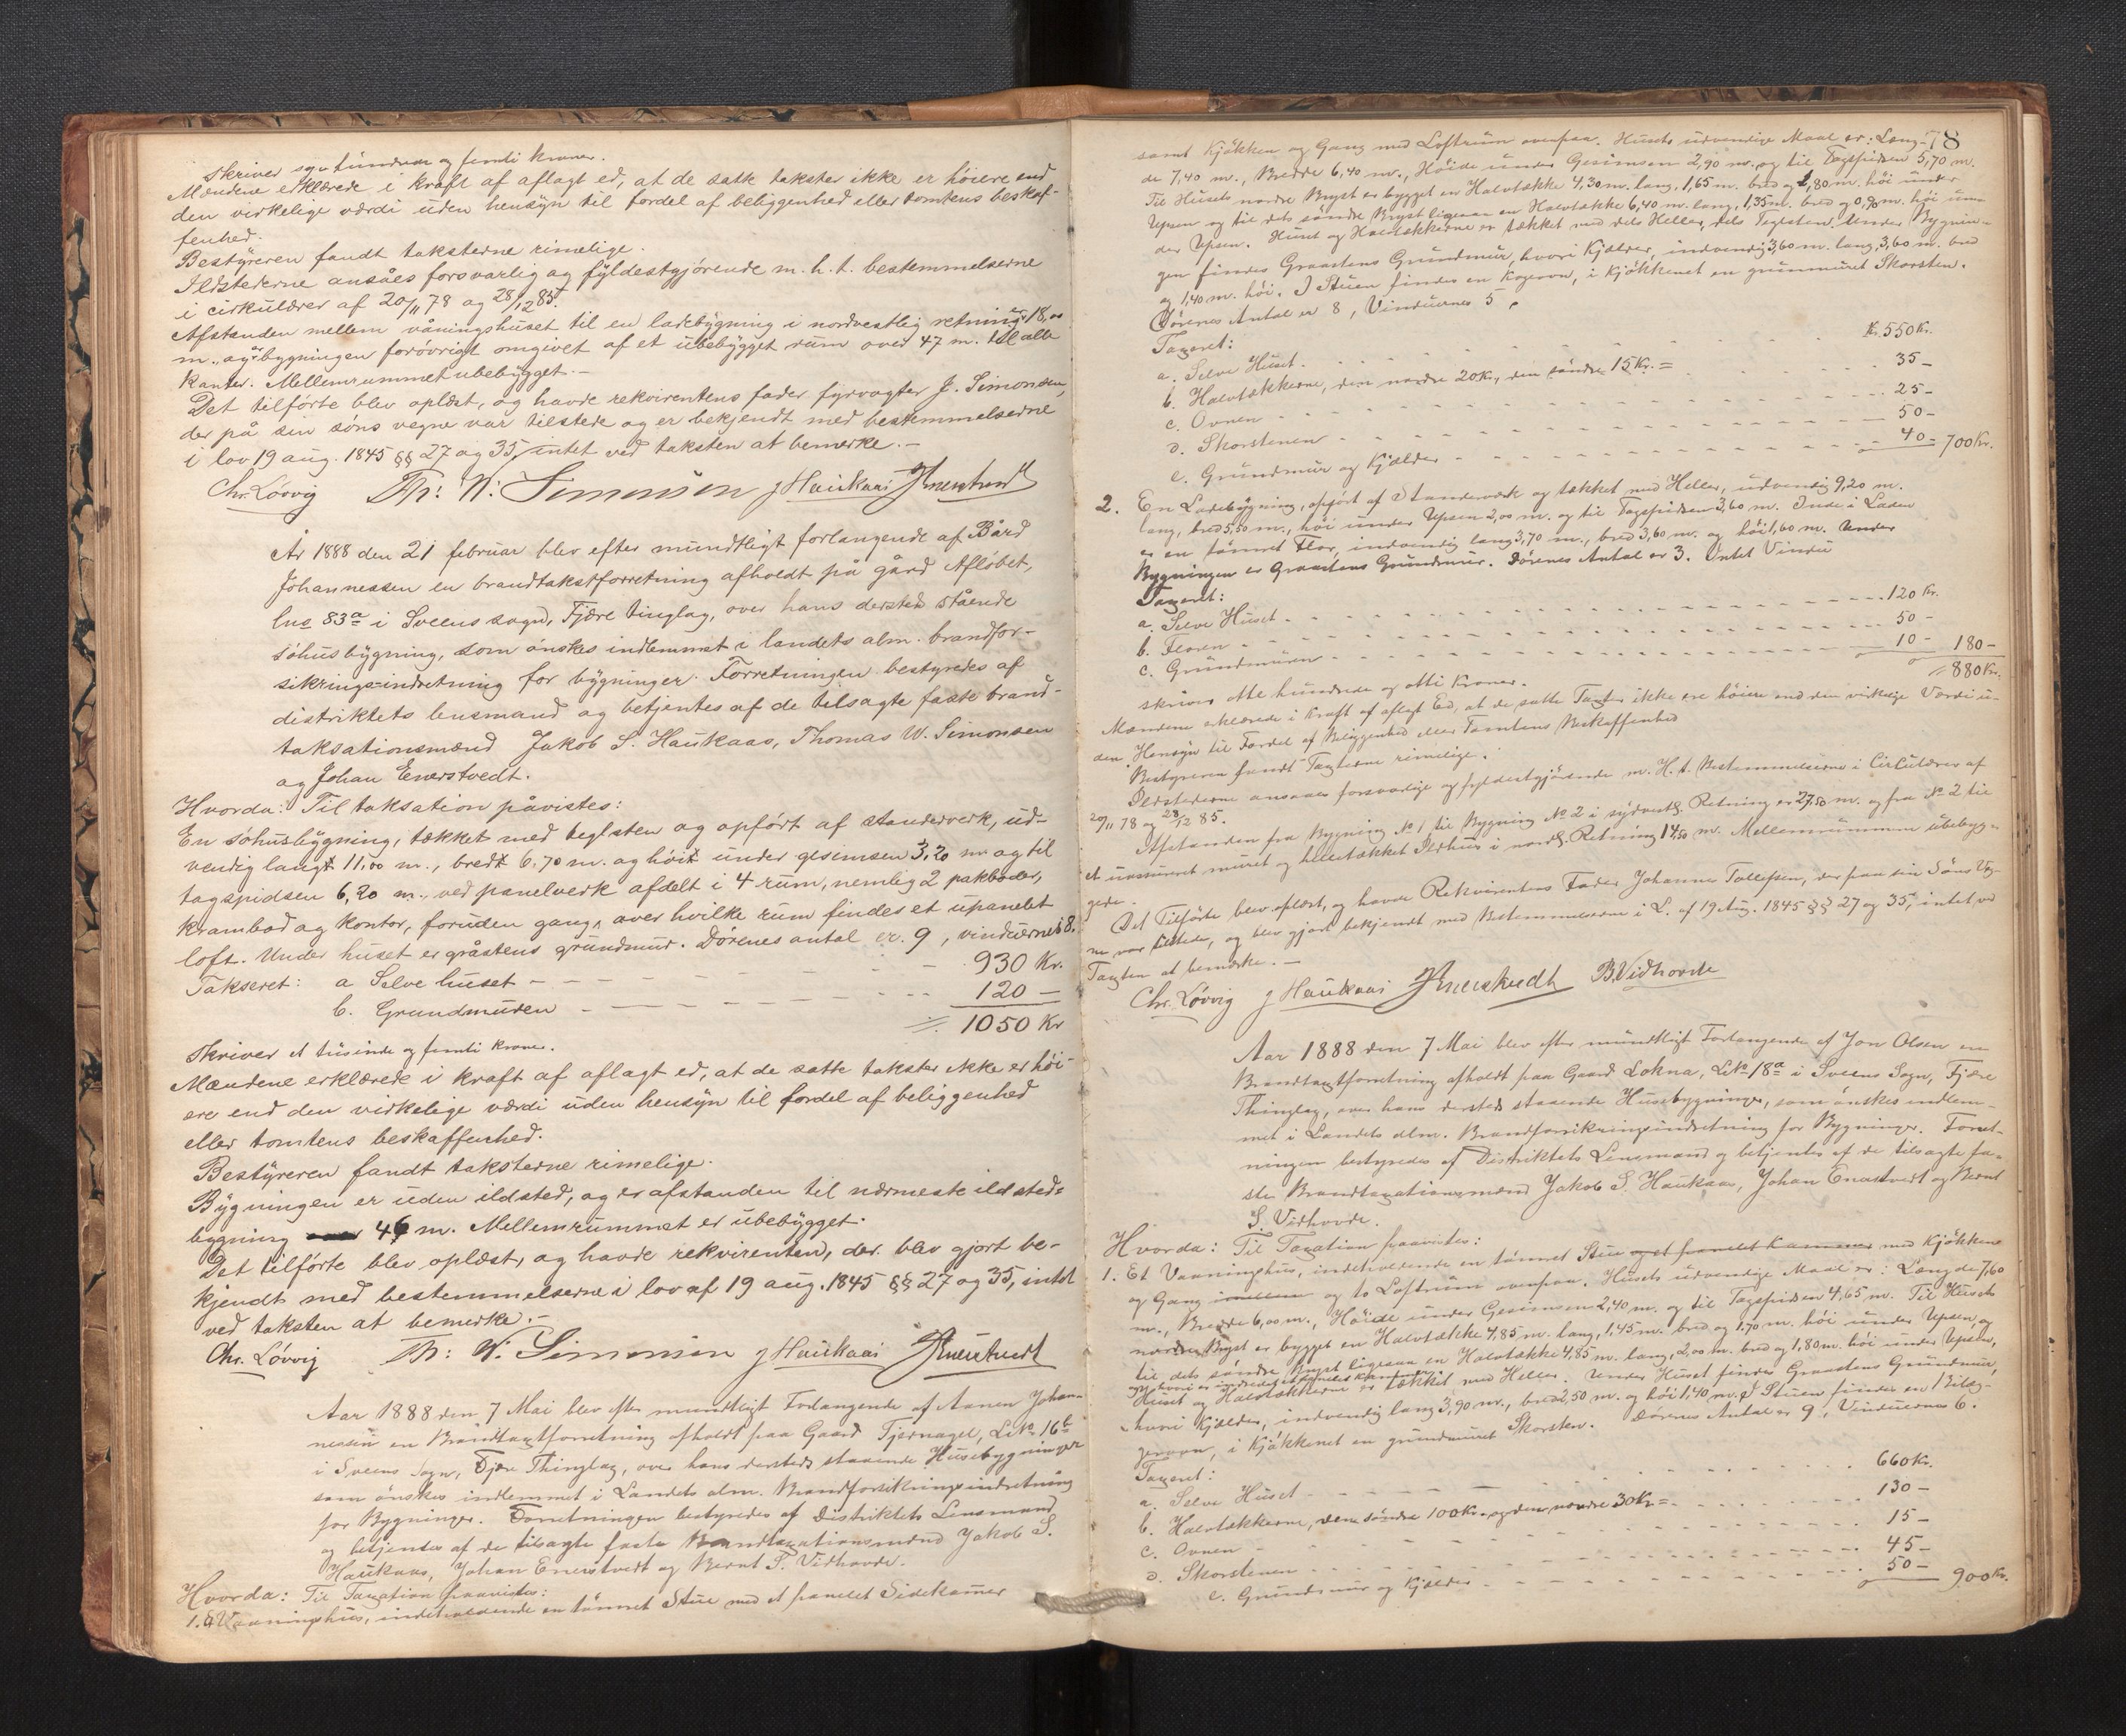 skriver syv hundrede og femti kroner.
Mændene erklærede i kraft af aflagt ed, at de satte takster ikke er høiere end
den virkelige værdi uden hensyn til fordel af beliggenhed eller tomtens beskaf-
fenhed.
Bestyreren fandt taksterne rimelige.
Ildstederne ansåes forsvarlig og fyldestgjørende m. h. t. bestemmelserne
i cirkulærer af 20/11 78 og 28/12 85.
Afstanden mellem våningshuset til en ladebygning i nordvestlig retning er 18,00
m., og er bygningen forøvrigt omgivet af et ubebygget rum over 47 m. til alle
kanter. Mellemrummet ubebygget.-
Det tilførte blev oplæst, og havde rekvirentens fader fyrvogter J. Simonsen,
der på sin søns vegne var tilstede og er bekjendt med bestemmelserne
i lov 19 aug. 1845 §§ 27 og 35, intet ved taksten at bemerke.-
Chr. Løvvig Th: W: Simonsen J Haukaas J Enerstvedt
År 1888 den 21 februar blev efter mundtligt forlangende af Bård
Johannessen en brandtakstforretning afholdt på gård Afløbet,
lno 83a i Sveens sogn, Fjære tinglag, over hans dersteds stående
søhusbygning, som ønskes indlemmet i landets alm. brandfor-
sikrings-indretning for bygninger. Forretningen bestyredes af
distriktets lensmand og betjentes af de tilsagte faste brand-
taksationsmænd Jakob S. Haukaas, Thomas W. Simonsen
og Johan Enerstvedt.
Hvorda: Til taksation påvistes:
En søhusbygning, tækket med teglsten og opført af standerverk, ud-
vendig langt 11,00 m., bredt 6.70 m. og høit under gesimsen 3,20 m. og til
tagspidsen 6,20 m., ved panelverk afdelt i 4 rum, nemlig 2 pakboder,
krambod og kontor, foruden gang, over hvilke rum findes et upanelet
loft. Under huset er gråstens grundmur. Dørenes antal er 9, vinduernes 8.
Takseret: a Selve huset - - - 930 Kr.
b. Grundmuren - - - 120 -
1050 Kr
skriver et tusinde og femti kroner.
Mændene erklærede i kraft af aflagt ed, at de satte takster ikke er høi-
ere end den virkelige værdi uden hensyn til fordel af beliggenhed
eller tomtens beskaffenhed.
Bestyreren fandt taksterne rimelige.
Bygningen er uden ildsted, og er afstanden til nærmeste ildsteds-
bygning 46 m. Mellemrummet er ubebygget.
Det tilførte blev oplæst, og havde rekvirenten, der blev gjort be-
kjendt med bestemmelserne i lov af 19 aug. 1845 §§ 27 og 35, intet
ved taksten at bemerke.-
Chr. Løvvig Th: W. Simonsen J Haukaas J Enerstvedt
Aar 1888 den 7 Mai blev efter mundtligt Forlangende af Johan-
nessen en Brandtaxtforretning afholdt paa Gaard Tjernagel, LNo 16
i Sveens Sogn, Fjære Thinglag, over hans dersteds staaende Husebygninger
som ønskes indlemmet i Landets alm. Brandforsikringsindretning
for Bygninger. Forretningen bestyredes af Distriktets Lensmand
og betjentes af de tilsagte faste Brandtaxationsmænd Jakob S.
Haukaas, Johan Enerstvedt og Bernt S. Vidhovde.
Hvorda: Til Taxation paavistes:
1. Et Vaaningshus, indeholdende en tømret Stue med et panelet Sidekamer
78
samt Kjøkken og Gang med Loftrum ovenpaa. Husets udvendige Maal er: Læng-
de 7,40 m., Bredde 6,40 m., Høide under Gesimsen 2,90 m., og til Tagspidsen 5,70 m.
Til Husets nordre Bryst er bygget en Halvtække 4,30 m. lang, 1,65 m. bred og 1,80 m. høi under
Upsen og til dets søndre Bryst ligesaa en Halvtække 6,40 m. lang, 1,35 m. bred og 0,90 m. høi un-
der Upsen. Huset og Halvtækkerne er tækket med dels Heller, dels Teglsten. Under Bygnin-
gen findes Graastens Grundmur, hvori Kjælder, indvendig 3,60 m. lang, 3,60 m. bred
og 1,40 m. høi. I Stuen findes en Kogeovn, i Kjøkkenet en grundmuret Skorsten.
Dørenes Antal er 8, Vinduernes 5.
Taxeret:
a. Selve Huset - - - Kr. 550 Kr.
b. Halvtækkerne, den nordre 20 Kr., den søndre 15 Kr. = - - - 35 -
c. Ovnen - - - 25 -
d. Skorstenen - - - 50 -
e. Grundmur og Kjælder - - - 40 - 700 Kr.
2. En Ladebygning, opført af Standerværk og tækket med Heller, udvendig 9,20 m.
lang, bred 5,50 m., høi under Upsen 2,00 m. og til Tagspidsen 3,60 m. Inde i Laden
er en tømret Flor, indvendig lang 3,70 m., bred 3,60 m. og høi 1,60 m. Under
Bygningen er Graastens Grundmur. Dørenes Antal er 3. Intet Vindu
Taxeret:
a. Selve Huset - - - 120 Kr.
b. Floren - - - 50 -
c. Grundmuren - - - 10 - 180 -
880 Kr.
skriver otte hundrede og otti Kroner.
Mændene erklærede i Kraft af aflagt Ed, at de satte Taxter ikke ere høiere end den virkelige Værdi u-
den Hensyn til Fordel af Beliggenhed eller Tomtens Beskaffenhed
Bestyreren fandt Taxterne rimelige.
Ildstederne ansaaes forsvarlige og fyldestgjørende m. H. t. Bestemmelserne i Cirkulærer af
20/11 78 og 28/12 85.
Afstanden fra Bygning No 1 til Bygning No 2 i sydvestl. Retning er 27,50 m. og fra No 2 til
et uassureret muret og helletækket Ildhus i nordl. Retning 14,50 m. Mellemrummene ubebyg-
gede.
Det Tilførte blev oplæst, og havde Rekvirentens Fader Johannes Tollefsen, der paa sin Søns Veg-
ne var tilstede, og blev gjort bekjendt med Bestemmelserne i L. af 19 Aug. 1845 §§ 27 og 35, intet ved
Taxten at bemærke.-
Chr. Løvvig J Haukaas J Enerstvedt B. Vidhovde
Aar 1888 den 7 Mai blev efter mundtligt Forlangende af Jon Olsen en
Brandtaxtforretning afholdt paa Gaard Lokna, LNo 18a i Sveens Sogn, Fjære
Thinglag, over hans dersteds staaende Husebygninger, som ønskes indlem-
met i Landets alm. Brandforsikringsindretning for Bygninger. Forret-
ningen bestyredes af Distriktets Lensmand og betjentes af de tilsagte fa-
ste Brandtaxationsmænd Jakob S. Haukaas, Johan Enerstvedt og Bernt
S. Vidhovde.
Hvorda: Til Taxation paavistes:
1. Et Vaaningshus, indeholdende en tømret Stue og et panelet Kammer med Kjøkken
og Gang og to Loftrum ovenpaa. Husets udvendige Maal er: Længde 7,60
m., Bredde 6,00 m., Høide under Gesimsen 2,40 m. og til Tagspidsen 4,65 m. Til Husets
nordre Bryst er bygget en Halvtække 4,85 m. lang, 1,45 m. bred og 1.70 m. høi under Upsen, og
til dets søndre Bryst ligesaa en Halvtække 4,85 m. lang, 2,00 m. bred og 1,80 m. høi under Upsen,
og hvori er indredet et panelet Kammer.
Huset og Halvtækkerne er tækket med Heller. Under Huset findes Graastens Grundmur,
hvori Kjælder, indvendig lang 3,90 m., bred 2,50 m. og høi 1,40 m. I Stuen findes en Bilæg-
gerovn, i Kjøkkenet en grundmuret Skorsten. Dørenes Antal er 9, Vinduernes 6.
Taxeret:
a. Selve Huset - - - 660 Kr.
b. Halvtækkerne, den søndre 100 Kr. og den nordre 30 Kr. = - - - 130 -
c. Ovnen - - - 15 -
d. Skorstenen - - - 45 -
e. Grundmur og Kjælder - - - 50 - 900 Kr.